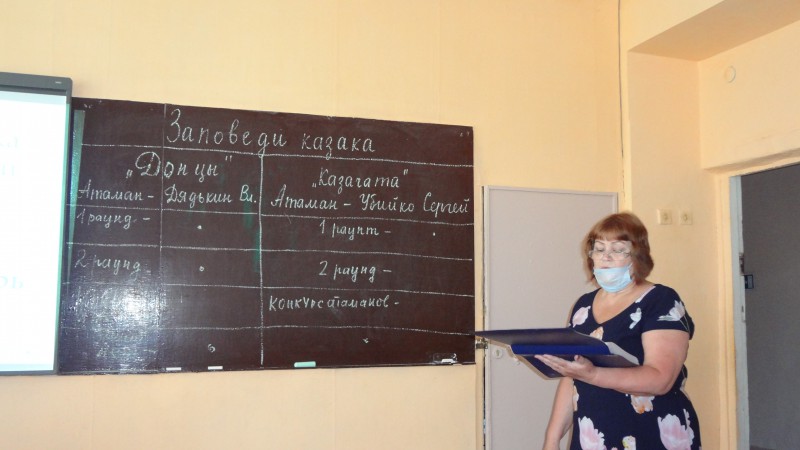 Заповеди казака
„Донцы"
„Казачата"
Атаман - Дядькин Вл.
Атаман - Убийко Сергей
1 раунд -
1 раунт -
2 раунд
2 раунд -
конкурс атаманов -